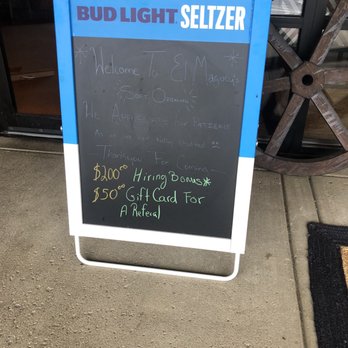 BUD LIGHT SELTZER
Welcome To El Maguey
We Appreciate
As we are not fully Staffed
Thank you For Coming
$200.00 Hiring Bonus*
$50.00 Gift Card For
A Referal